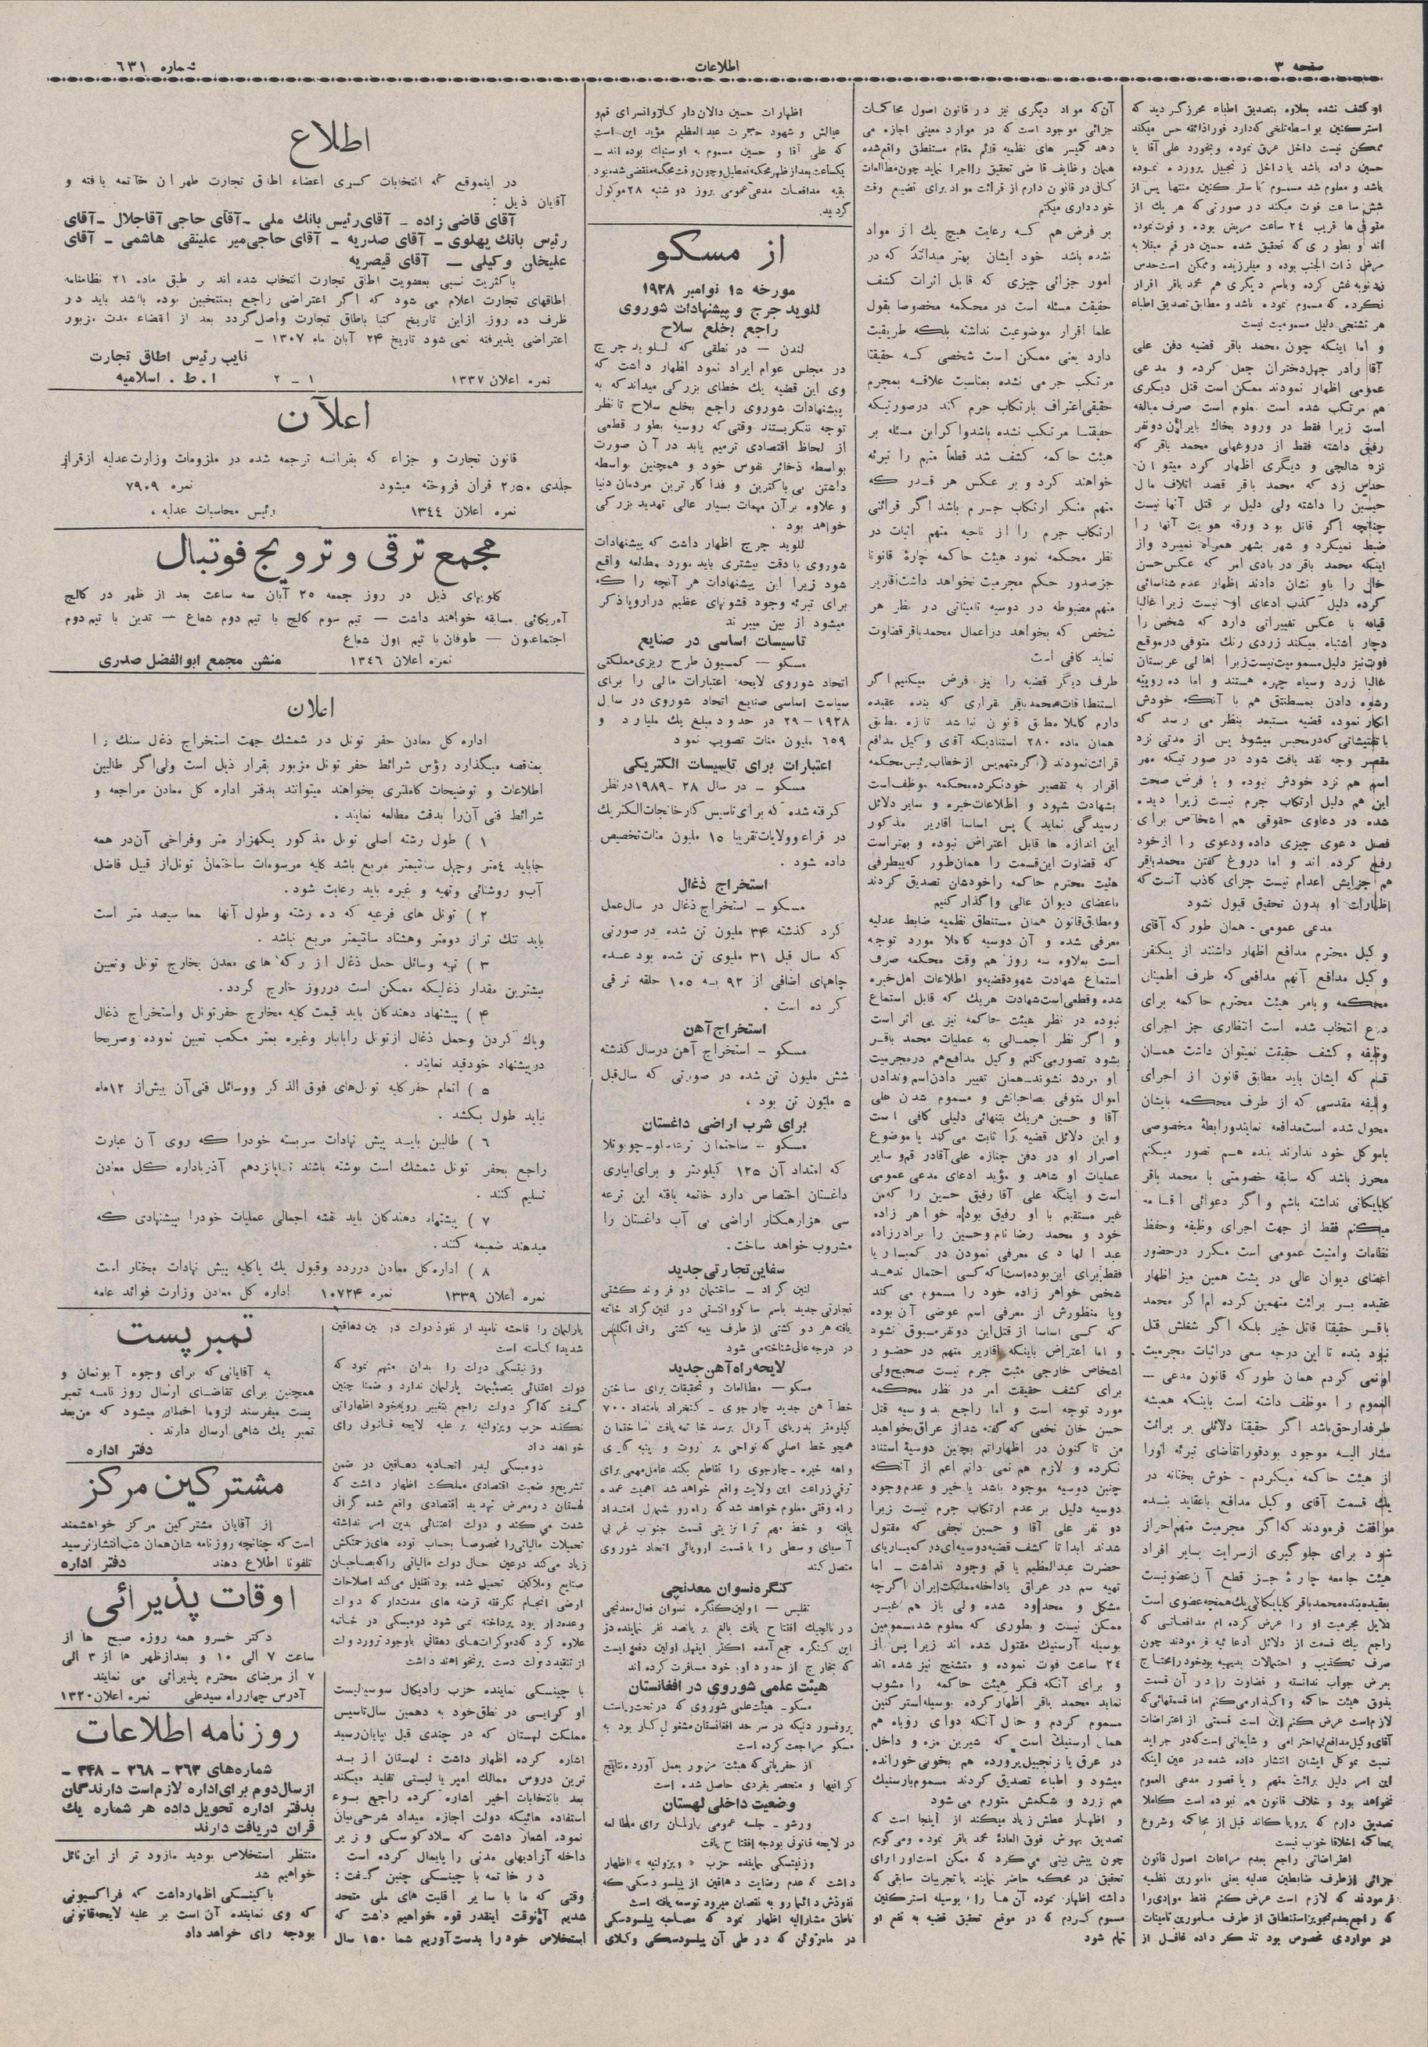 صفحه ۳
اطلاعات
شماره ۶۳۱
او کشف نشده بعلاوه بتصدیق اطباء محرز گردید که
استرکنین بواسطه تلخی که دارد فورا ذائقه حس میکند
ممکن نیست داخل عرق نموده و بخورد علی آقا یا
حسین داده باشد یا داخل زنجبیل پرورده نموده
باشد و معلوم شد مسموم با ستر کنین منتها پس از
شش ساعت فوت میکند در صورتی که هر یك از
مقوفی ها قریب ۲۴ ساعت مریض بوده و فوت نموده
اند و بطوری که تحقیق شده حسین در قم مبتلا به
مرض ذات الجنب بوده و میلرزیده و ممکن است حدس
نکرده که مسموم نموده باشد و مطابق تصدیق اطباء
هر تشنجی دلیل مسمومیت نیست
و اما اینکه چون محمد باقر قضیه دفن علی
آقا را در چهل دختران جعل کرده و مدعی
عمومی اظهار نمودند ممکن است قتل دیگری
هم مرتکب شده است معلوم است صرف مبالغه
است زیرا فقط در ورود بخاك بایران دو نفر
رفیق داشته فقط از دروغهای محمد باقر که
نزد شالچی و دیگری اظهار کرد میتوان
حدس زد که محمد باقر قصد اتلاف مال
حسین را داشته ولی دلیل بر قتل آنها نیست
چنانچه اگر قاتل بود ورقه هویت آنها را
ضبط نمیکرد و شهر بشهر همراه نمیبرد و از
اینکه محمد باقر در بادی امر که عکس حسن
خان را باو نشان دادند اظهار عدم شناسائی
کرده دلیل کذب ادعای او نیست زیرا غالبا
قیافه با عکس تغییراتی دارد که شخص را
دچار اشتباه میکند زردی رنك متوفی در موقع
فوت نیز دلیل مسمومیت نیست زیرا اهالی عربستان
غالبا زرد و سیاه چهره هستند و اما ده روپیه
رشوه دادن بمستنطق هم با آنکه خودش
انکار نموده قضیه مستبعد بنظر می رسد که
با تفتیشاتی که در محبس میشود پس از مدتی نزد
مقصر وجه نقد یافت شود در صورتیکه مهر
اسم هم نزد خودش نبوده و با فرض صحت
این هم دلیل ارتکاب جرم نیست زیرا دیده
شده در دعاوی حقوقی هم اشخاص برای
فصل دعوی چیزی داده و دعوی را از خود
رفع کرده اند و اما دروغ گفتن محمد باقر
هم جزایش اعدام نیست جزای کاذب آنست که
اظهارات او بدون تحقیق قبول نشود
مدعی عمومی - همان طور که آقای
وکیل محترم مدافع اظهار داشتند از یکنفر
وکیل مدافع آنهم مدافعی که طرف اطمینان
محکمه و بامر هیئت محترم حاکمه برای
دفاع انتخاب شده است انتظاری جز اجرای
وظیفه و کشف حقیقت نمیتوان داشت همان
قسم که ایشان باید مطابق قانون از اجرای
وظیفه مقدسی که از طرف محکمه بایشان
محول شده است مدافعه نمایند و رابطهٔ مخصوصی
باموکل خود ندارند بنده هم تصور میکنم
محرز باشد که سابقه خصومتی با محمد باقر
کلپایگانی نداشته باشم و اگر دعوائی اقامه
میکنم فقط از جهت اجرای وظیفه و حفظ
نظامات و امنیت عمومی است مکرر در حضور
اعضای دیوان عالی در پشت همین میز اظهار
عقیده بر برائت متهمین کرده ام اگر محمد
باقر حقیقتا قاتل خیر بلکه اگر شغلش قتل
نبود بنده تا این درجه سعی در اثبات مجرمیت
او نمی کردم همان طور که قانون مدعی -
العموم را موظف داشته است باینکه همیشه
طرفدار حق باشد اگر حقیقتا دلائلی بر برائت
مشار الیه موجود بود فورا تقاضای تبرئه او را
از هیئت حاکمه میکردم - خوش بختانه در
یك قسمت آقای وکیل مدافع با عقاید بنده
موافقت فرمودند که اگر مجرمیت متهم احراز
شود برای جلوگیری از سرایت بسایر افراد
هیئت جامعه چارهٔ جز قطع آن عضو نیست
بعقیده بنده محمد باقر کلپایگانی یك همچه عضوی است
دلایل مجرمیت او را عرض کرده ام مدافعاتی که
راجع بیك قسمت از دلائل ادعائیه فرمودند چون
صرف تکذیب و احتمالات بدیهیه بود خود را محتاج
بعرض جواب ندانسته و قضاوت را در آن قسمت
بذوق هیئت حاکمه واگذار میکنم اما قسمتهائی که
لازم است عرض کنم این است قسمتی از اعتراضات
آقای وکیل مدافع اتهامات اعرامی و شایعاتی است که در جراید
نسبت بموکل ایشان انتشار داده شده در عین اینکه
این امر دلیل برائت متهم و یا قصور مدعی العموم
نخواهد بود و خلاف قانون هم نبوده است کاملا
تصدیق دارم که پروپاکاند قبل از محاکمه و شروع
بمحاکمه اخلاقا خوب نیست
اعتراضاتی راجع بعدم مراعات اصول قانون
جزائی از طرف ضابطین عدلیه یعنی مامورین نظمیه
فرمودند که لازم است عرض کنم فقط موادی را
که راجع بعدم تجویز استنطاق از طرف مامورین تامینات
در مواردی مخصوص بود تذکر داده غافل از
آن که مواد دیگری نیز در قانون اصول محاکمات
جزائی موجود است که در موارد معینی اجازه می
دهد کمیسر های نظمیه قائم مقام مستنطق واقع شده
همان وظایف قاضی تحقیق را اجرا نماید چون مطالعات
کافی در قانون دارم از قرائت مواد برای تضییع وقت
خودداری میکنم
بر فرض هم که رعایت هیچ یك از مواد
نشده باشد خود ایشان بهتر میدانند که در
امور جزائی چیزی که قابل اثرات کشف
حقیقت مسئله است در محکمه مخصوصا بقول
علما اقرار موضوعیت نداشته بلکه طریقیت
دارد یعنی ممکن است شخصی که حقیقتا
مرتکب جرمی نشده بمناسبت علاقه بمجرم
حقیقی اعتراف بارتکاب جرم کند در صورتیکه
حقیقتا مرتکب نشده باشد و اگر این مسئله بر
هیئت حاکمه کشف شد قطعا متهم را تبرئه
خواهند کرد و بر عکس هر قدر که
متهم منکر ارتکاب جرم باشد اگر قرائنی
ارتکاب جرم را از ناحیه متهم اثبات در
نظر محکمه نمود هیئت حاکمه چارهٔ قانونا
جز صدور حکم مجرمیت نخواهد داشت اقاریر
متهم مضبوطه در دوسیه تامیناتی در نظر هر
شخص که بخواهد در اعمال محمد باقر قضاوت
نماید کافی است
طرف دیگر قضیه را نیز فرض میکنیم اگر
استنطاقات محمد باقر بقراری که بنده عقیده
دارم کاملا مطابق قانون نباشد تازه مطابق
همان ماده ۲۸۰ استنادیکه آقای وکیل مدافع
قرائت نمودند (اگر متهم پس از خطاب رئیس محکمه
اقرار به تقصیر خود نکرده محکمه موظف است
بشهادت شهود و اطلاعات خبره و سایر دلائل
رسیدگی نماید) پس اساسا اقاریر مذکور
این اندازه ها قابل اعتراض نبوده و بهتر است
که قضاوت این قسمت را همان طور که بیطرفی
هیئت محترم حاکمه را خودشان تصدیق کردند
باعضای دیوان عالی واگذار کنیم
و مطابق قانون همان مستنطق نظمیه ضابط عدلیه
معرفی شده و آن دوسیه کاملا مورد توجه
است بعلاوه سه روز هم وقت محکمه صرف
استماع شهادت شهود قضیه و اطلاعات اهل خبره
شده و قطعی است شهادت هر یك که قابل استماع
نبوده در نظر هیئت حاکمه نیز بی اثر است
و اگر نظر اجمالی به عملیات محمد باقر
بشود تصور می کنم وکیل مدافع هم در مجرمیت
او مردد نشوند - همان تغییر دادن اسم و ندادن
اموال متوفی بصاحبانش و مسموم شدن علی
آقا و حسین هر یك بتنهائی دلیلی کافی است
و این دلائل قضیه را ثابت می کند یا موضوع
اصرار او در دفن جنازه علی آقا در قم و سایر
عملیات او شاهد و مؤید ادعای مدعی عمومی
است و اینکه علی آقا رفیق حسین را که من
غیر مستقیم با او رفیق بوده خواهر زاده
خود و محمد رضا نام و حسین را برادر زاده
عبدالهادی معرفی نمودن در کمیساریا
فقط برای این بوده است که کسی احتمال ندهد
شخص خواهر زاده خود را مسموم می کند
و یا منظورش از معرفی اسم عوضی آن بوده
که کسی اساسا از قتل این دو نفر مسبوق نشود
و اما اعتراض باینکه اقاریر متهم در حضور
اشخاص خارجی مثبت جرم نیست صحیح ولی
برای کشف حقیقت امر در نظر محکمه
مورد توجه است و اما راجع بدوسیه قتل
حسن خان نخعی که گفته شد از عراق بخواهید
من تا کنون در اظهاراتم بچنین دوسیهٔ استناد
نکرده و لازم هم نمی دانم اعم از آنکه
چنین دوسیه موجود باشد یا خیر و عدم وجود
دوسیه دلیل بر عدم ارتکاب جرم نیست زیرا
دو نفر علی آقا و حسین نجفی که مقتول
شدند ابدا تا کشف قضیه دوسیه ای در کمیسارهای
حضرت عبدالعظیم یا قم وجود نداشت - اما
تهیه سم در عراق یا داخله مملکت ایران اگر چه
مشکل و محدود شده ولی باز هم غیر
ممکن نیست و بطوری که معلوم شد مسمومین
بوسیله آرسنیك مقتول شده اند زیرا پس از
۲۴ ساعت فوت نموده و متشنج نیز شده اند
و برای آنکه فکر هیئت حاکمه را مشوب
نماید محمد باقر اظهار کرده بوسیله استرکنین
مسموم کردم و حال آنکه دوای روباه هم
همان آرسنیك است که شیرین مزه و داخل
در عرق یا زنجبیل پرورده هم بخوبی خورانده
میشود و اطباء تصدیق کردند مسموم بارسنیك
هم زرد و شکمش متورم می شود
و اظهار عطش زیاد میکند از اینجا است که
تصدیق بهوش فوق العادهٔ محمد باقر نموده و میگویم
چون پیش بینی می کرد که ممکن است او را برای
تحقیق در محکمه حاضر نمایند با تجربیات سابقی که
داشته اظهار نموده آن ها را بوسیله استرکنین
مسموم کردم که در موقع تحقیق قضیه به نفع او
تمام شود
اظهارات حسین دالان دار کاروانسرای قم و
عیالش و شهود حضرت عبدالعظیم مؤید این است
که علی آقا و حسین مسموم به آرسنیك بوده اند -
یکساعت بعد از ظهر محکمه تعطیل و چون وقت محکمه منقضی شده بود
بقیه مدافعات مدعی عمومی بروز دوشنبه ۲۸ موکول
گردید
از مسکو
مورخه ۱۵ نوامبر ۱۹۲۸
للوید جرج و پیشنهادات شوروی
راجع بخلع سلاح
لندن - در نطقی که للوید جرج
در مجلس عوام ایراد نمود اظهار داشت که
وی این قضیه یك خطای بزرگی میداند که به
پیشنهادات شوروی راجع بخلع سلاح تا نظر
توجه ننگریستند وقتی که روسیه بطور قطعی
از لحاظ اقتصادی ترمیم یابد در آن صورت
بواسطه ذخائر نفوس خود و همچنین بواسطه
داشتن بی باکترین و فداکارترین مردمان دنیا
و علاوه بر آن مهمات بسیار عالی تهدید بزرگی
خواهد بود.
للوید جرج اظهار داشت که پیشنهادات
شوروی با دقت بیشتری باید مورد مطالعه واقع
شود زیرا این پیشنهادات هر آنچه را که
برای تبرئه وجود قشونهای عظیم در اروپا ذکر
میشود از بین میبرند
تاسیسات اساسی در صنایع
مسکو - کمسیون طرح ریزی مملکتی
اتحاد شوروی لایحه اعتبارات مالی را برای
سیاست اساسی صنایع اتحاد شوروی در سال
۱۹۲۸ - ۲۹ در حدود مبلغ یك ملیارد و
۶۵۹ ملیون منات تصویب نمود
اعتبارات برای تاسیسات الکتریکی
مسکو - در سال ۲۸ - ۱۹۸۹ در نظر
گرفته شده که برای تاسیس کارخانجات الکتریك
در قراء و ولایات تقریبا ۱۵ ملیون منات تخصیص
داده شود.
استخراج ذغال
مسکو - استخراج ذغال در سال عمل
کرد گذشته ۳۴ ملیون تن شده در صورتی
که سال قبل ۳۱ ملیون تن شده بود عده
چاههای اضافی از ۹۲ به ۱۰۵ حلقه ترقی
کرده است.
استخراج آهن
مسکو - استخراج آهن در سال گذشته
شش ملیون تن شده در صورتی که سال قبل
۵ ملیون تن بود.
برای شرب اراضی داغستان
که امتداد آن ۱۲۵ کیلومتر و برای ابیاری
داغستان اختصاص دارد خاتمه یافته این ترعه
سی هزار هکتار اراضی بی آب داغستان را
مشروب خواهد ساخت.
سفاین تجارتی جدید
لنین گراد - ساختمان دو فروند کشتی
تجارتی جدید باسم ساکو وانتستی در لنین گراد خاتمه
یافته هر دو کشتی از طرف بیمه کشتی رانی انگلیس
در درجه عالی شناخته می شود
لایحه راه آهن جدید
مسکو - مطالعات و تحقیقات برای ساختن
خط آهن جدید چارجوی - کنگراد بامتداد ۷۰۰
کیلومتر بدریای آرال برسد خاتمه یافت ساختمان
همچو خط اصلی که نواحی پر ثروت و پنبه کاری
واحه خیوه - چارجوی را تقاطع بکند عامل مهمی برای
ترقی زراعت این ولایت واقع خواهد شد اهمیت عمده
راه وقتی معلوم خواهد شد که راه رو بشمال امتداد
یافته و خط مهم ترانزیتی قسمت جنوب غربی
آسیای وسطی را با قسمت اروپائی اتحاد شوروی
متصل کند
کنگره نسوان معدنچی
تفلیس - اولین کنگره نسوان فعال معدنچی
در نالچیك افتتاح یافت بالغ بر پانصد نفر نماینده در
این کنگره جمع آمده اکثر اینهل اولین دفعه است
که بخارج از حدود اوبه خود مسافرت کرده اند
هیئت علمی شوروی در افغانستان
مسکو - هیئت علمی شوروی که در تحت ریاست
پروفسور دنیکه در سرحد افغانستان مشغول کار بود به
مسکو مراجعت کرده است
از حفریاتی که هیئت مزبور بعمل آورده نتایج
گرانبها و منحصر بفردی حاصل شده است
وضعیت داخلی لهستان
ورشو - جلسه عمومی پارلمان برای مطالعه
در لایحه قانونی بودجه افتتاح یافت
وزنیتسکی نماینده حزب «ویزولنیه» اظهار
داشت که عدم رضایت دهاقین از پیلسودسکی که
نفوذش دائما رو به نقصان میرود توسعه یافته است
ناطق مشارالیه اظهار نمود که مصاحبه پیلسودسکی
در مامزوئن که در طی آن پیلسودسکی وکلای
پارلمان را فاحشه نامید از نفوذ دولت در بین دهاقین
شدیدا کاسته است
وزنیتسکی دولت را بدان متهم نمود که
دولت اعتنائی بتصمیمات پارلمان ندارد و ضمنا چنین
گفت که اگر دولت راجع بتغییر رویه خود اظهاراتی
نکند حزب ویزولنیه بر علیه لایحه قانونی رای
خواهد داد
دومبسکی لیدر اتحادیه دهاقین در ضمن
تشریح وضعیت اقتصادی مملکت اظهار داشت که
لهستان در معرض تهدید اقتصادی واقع شده گرانی
شدت می کند و دولت اعتنائی بدین امر نداشته
تحمیلات مالیاتی را مخصوصا بحساب توده های زحمتکش
زیاد میکند در عین حال دولت مالیاتی را که بصاحبان
صنایع و ملاکین تحمیل شده بود تقلیل می کند اصلاحات
ارضی انجام نگرفته قرضه های مدت دار که دولت
وعده دار بود پرداخته نمی شود دومبسکی در خاتمه
علاوه کرد که دموکرات های دهقانی باوجود ترور دولت
از تنقید دولت دست برنخواهند داشت
باچینسکی نماینده حزب رادیکال سوسیالیست
اوکراینی در نطق خود به دهمین سال تاسیس
مملکت لهستان که در چندی قبل بپایان رسید
اشاره کرده اظهار داشت: لهستان از بد
ترین دروس ممالك امپریالیستی تقلید میکند
بعد بانتخابات اخیر اشاره کرده راجع بسوء
استفاده هائیکه دولت اجازه میداد شرحی بیان
نمود، اشعار داشت که سلادکوسکی وزیر
داخله آزادیهای مدنی را پایمال کرده است
در خاتمه باچینسکی چنین گفت:
وقتی که ما با سایر اقلیت های ملی متحد
شدیم آنوقت اینقدر قوه خواهیم داشت که
استخلاص خود را بدست آوریم شما ۱۵۰ سال
منتظر استخلاص بودید ما زودتر از این نائل
خواهیم شد
باکینسکی اظهار داشت که فراکسیونی
که وی نماینده آن است بر علیه لایحه قانونی
بودجه رای خواهد داد
اطلاع
در اینموقع که انتخابات کسری اعضاء اطاق تجارت طهران خاتمه یافته و
آقایان ذیل:
آقای قاضی زاده - آقای رئیس بانك ملی - آقای حاجی آقا جلال - آقای
رئیس بانك پهلوی - آقای صدریه - آقای حاجی میر علینقی هاشمی - آقای
علیخان وکیلی - آقای قیصریه
باکثریت نسبی بعضویت اطاق تجارت انتخاب شده اند بر طبق ماده ۲۱ نظامنامه
اطاقهای تجارت اعلام می شود که اگر اعتراضی راجع بمنتخبین بوده باشد باید در
ظرف ده روز ازاین تاریخ کتبا باطاق تجارت واصل گردد بعد از انقضاء مدت مزبور
اعتراضی پذیرفته نمی شود تاریخ ۲۴ آبان ماه ۱۳۰۷ -
نایب رئیس اطاق تجارت
نمره اعلان ۱۳۳۷ ۱ - ۲ ا. ط. اسلامیه
اعلان
قانون تجارت و جزاء که بفرانسه ترجمه شده در ملزومات وزارت عدلیه از قرار
جلدی ۲٫۵۰ قران فروخته میشود نمره ۷۹۰۹
نمره اعلان ۱۳۴۴ رئیس محاسبات عدلیه.
مجمع ترقی و ترویج فوتبال
کلوبهای ذیل در روز جمعه ۲۵ آبان سه ساعت بعد از ظهر در کالج
آمریکائی مسابقه خواهند داشت - تیم سوم کالج با تیم دوم شعاع - تدین با تیم دوم
اجتماعیون - طوفان با تیم اول شعاع
نمره اعلان ۱۳۴۶ منشی مجمع ابوالفضل صدری
اعلان
اداره کل معادن حفر تونل در شمشك جهت استخراج ذغال سنك را
بمناقصه میگذارد رؤس شرائط حفر تونل مزبور بقرار ذیل است ولی اگر طالبین
اطلاعات و توضیحات کاملتری بخواهند میتوانند بدفتر اداره کل معادن مراجعه و
شرائط فنی آن را بدقت مطالعه نمایند.
۱) طول رشته اصلی تونل مذکور یکهزار متر و فراخی آن در همه
جا باید ۴ متر و چهل سانتیمتر مربع باشد کلیه مرسومات ساختمان تونل از قبیل فاضل
آب و روشنائی و تهویه و غیره باید رعایت شود.
۲) تونل های فرعیه که ده رشته و طول آنها معا سیصد متر است
باید تنك تر از دو متر و هشتاد سانتیمتر مربع نباشد.
۳) تهیه وسائل حمل ذغال از رگه های معدن بخارج تونل و تعیین
بیشترین مقدار ذغالیکه ممکن است در روز خارج گردد.
۴) پیشنهاد دهندگان باید قیمت کلیه مخارج حفر تونل و استخراج ذغال
و پاك کردن و حمل ذغال از تونل را بانبار وغیره بمتر مکعب تعیین نموده و صریحا
در پیشنهاد خود قید نمایند.
۵) اتمام حفر کلیه تونل های فوق الذکر و وسائل فنی آن بیش از ۱۲ ماه
نباید طول بکشد.
۶) طالبین باید پیش نهادات سربسته خود را که روی آن عبارت
راجع بحفر تونل شمشك است نوشته باشند تا پانزدهم آذر باداره کل معادن
تسلیم کنند.
۷) پیشنهاد دهندگان باید نقشه اجمالی عملیات خود را بپیشنهادی که
میدهند ضمیمه کنند.
۸) اداره کل معادن در رد و قبول یك یا کلیه پیش نهادات مختار است
نمره اعلان ۱۳۳۹ نمره ۱۰۷۲۴ اداره کل معادن وزارت فوائد عامه
تمبر پست
به آقایانی که برای وجوه آبونمان و
همچنین برای تقاضای ارسال روزنامه تمبر
پست میفرستند لزوما اخطار میشود که من بعد
تمبر یك شاهی ارسال دارند.
دفتر اداره
مشترکین مرکز
از آقایان مشترکین مرکز خواهشمند
است که چنانچه روزنامه شان همان شب انتشار نرسید
تلفونا اطلاع دهند دفتر اداره
اوقات پذیرائی
دکتر خسرو همه روزه صبح ها از
ساعت ۷ الی ۱۰ و بعد از ظهر ها از ۳ الی
۷ از مرضای محترم پذیرائی می نمایند
آدرس چهارراه سیدعلی نمره اعلان ۱۳۲۰
روزنامه اطلاعات
شماره های ۲۶۳ - ۲۶۸ - ۳۴۸ -
از سال دوم برای اداره لازم است دارندگان
بدفتر اداره تحویل داده هر شماره یك
قران دریافت دارند